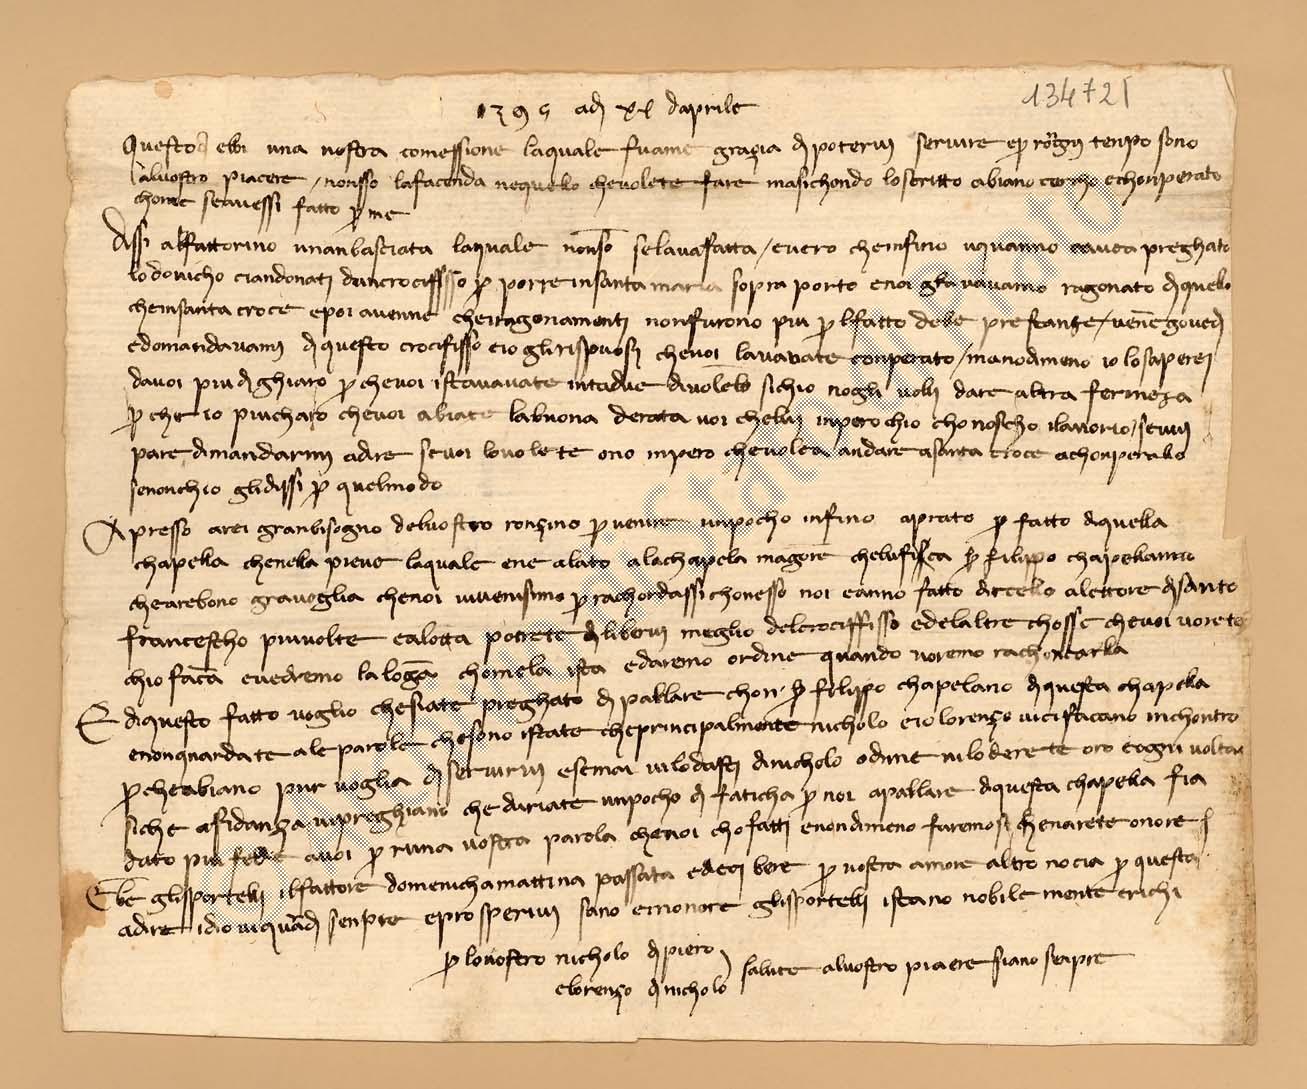 134721
1395 adj xl daprile
Questodj ebbi una vostra comessione laquale fuame grazia dj potervi servire epro ognj tenpo sono
alvostro piacere / nonsso lafacenda nequello chevolete fare masichondo loscritto abiano cercho echonperato
chome seavessi fatto per me
dissi alfattorino unanbasciata laquale nonso selavafatta / evero cheinfino uquanno aavea preghato
lodovicho ciandonati duncrocifissso per porre insanta maria sopra porto enoi gliavavamo ragonato djquello
cheinsanta croce epoi avenne cheiragonamenti nonfurono piu per lfatto dele prestanze / venne govedj
edomandavami dj questo crocifisso eio glirispuosi chevoi lavavate conperato / manodimeno io losaperei
davoi piu djghiaro per chevoi istavavate intadue divolello sichio nogli volli dare altra fermeza
per che io piucharo chevoi abiate labuona derata voi chelui inpero chio chonoscho ilavorio / sevvi
pare dimandarmi adire sevoi lovolete ono inpero chevolea andare asanta croce achonperallo
senonchio glidissi per quelmodo
Apresso arei granbisogno delvostro ronzino per venire unpocho infino aprato per fatto diquella
chapella chenella pieve laquale ene alato alachapela magore cheluficia ser filippo chapellanno
chearebono granvoglia chenoi vivenisimo per rachordassi chonesso noi eanno fatto dircello alettore djsanto
francescho piuvolte ealotta potrete dj libervi meglio delcrociffisso edelaltre chosse chevoi vorete
chio facca evedremo la loga chomela ista edaremo ordine quando voremo rachoncarlla
E diquesto fatto voglio chesiate preghato dj parllare chon ser filippo chapelano dj questa chapella
enonguardate ale parole chesono istate cheprincipalmente nicholo eiolorenzo vicifacano inchontro
per cheabiano pur voglia dj servirvi esemai vilodasti dinicholo odime vilodertete oro eogni volta
siche afidanza vipreghiano che duriate unpocho dj faticha per noi aparllare diquesta chapella fia
dato piu fede avoi per runa vostra parola chenoi chofatti enondimeno faremosi chenarete onore
Ebe glisportelli ilfattore domenichamattina passata edeci bere per vostra amore altro nocia per questa
adire idio viguardj senpre eprosperivi sano econore glisportelli istano nobile mente erichi
per lovostro nicholo dj piero
elorenzo dj nicholo } salute alvostro piacere siano senpre